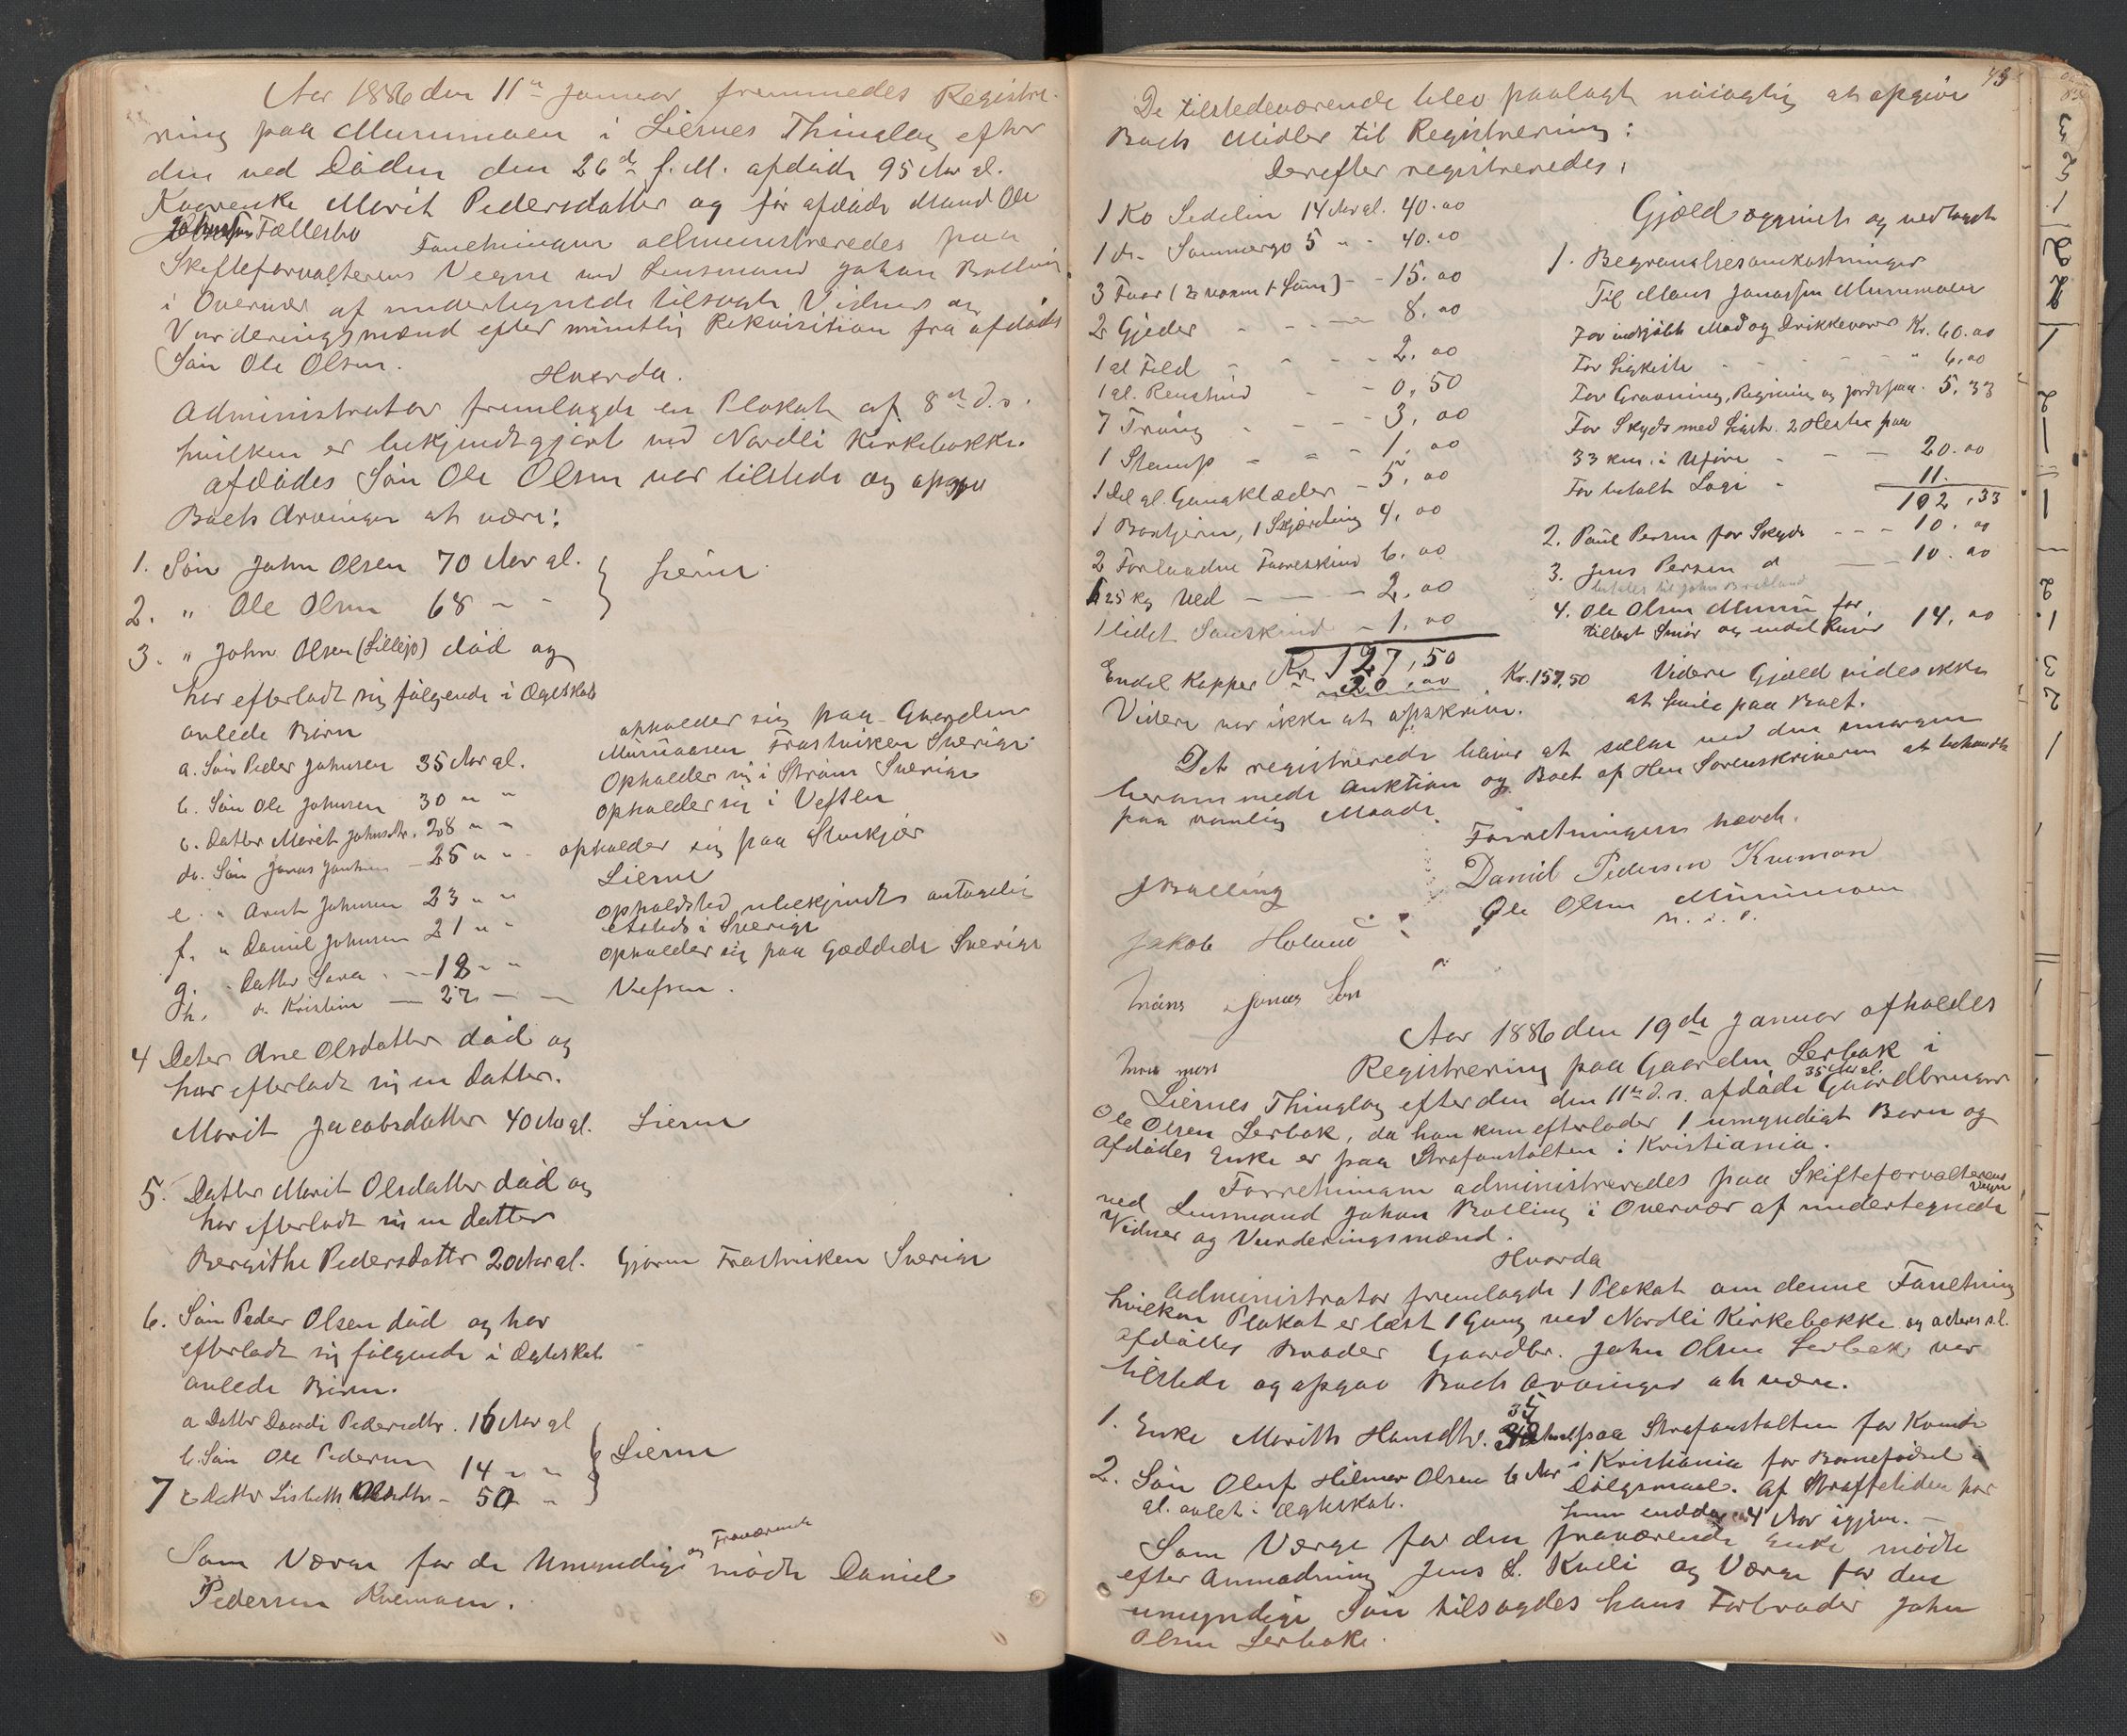 Aar 1886 den 11te Januar fremmedes Registre-
ring paa Murumoen i Liernes Thinglag efter
den ved Døden den 26de f. M. afdøde 95 Aar gl.
Kaarenke Marit Pedersdatter og før afdøde Mand Ole
Fællesbo Forretningen administreredes paa
Skifteforvalterens Vegne ved Lensmand Johan Bolling
i Overvær af undertegnede tilsagte Vidner og
Vurderingsmænd efter mündtlig Rekvisition fra afdødes
Søn Ole Olsen.
Hvorda.
Administrator fremlagde en Plakat af 8de d.s.
hvilken er bekjendtgjort ved Nordli Kirkebakke.
afdødes Søn Ole Olsen var tilstede og opgav
Boets Arvinger at være:
1. Søn John Olsen 70 Aar gl.
2. " Ole Olsen 68 - - } Lierne
3. " John Olsen (Lillejo) død og
har efterladt sig følgende i Ægteskab
avlede Børn
a. Søn Peder Johnsen 35 Aar gl. opholder sig paa Gaarden
Murüaasen Frostviken Sverige
b. Søn Ole Johnsen 30 " " Opholder sig i Strøm Sverige
c. Datter Marit Johnsdtr. 28 " " opholder sig i Vefsen
d. Søn Jonas Johnsen - 25 " " opholder sig paa Stenkjær
e. " Arnt Johnsen 23 " " Lierne
f. " Daniel Johnsen 21 " " opholdsted ubekjendt antagelig
etsteds i Sverige
g. Datter Sara - 18 - " opholder sig paa Gæddede Sverige
h. d. Kristine - 27 - - Vefsen.
4 Deter Ane Olsdatter død og
har efterladt sig en Datter.
Marit Jacobsdatter 40 Aar gl. Lierne
5. Datter Marit Olsdatter død og
har efterladt sig en datter
Bergithe Pedersdatter 20 Aar gl. Gjøren Frostviken Sverige
6. Søn Peder Olsen død og har
efterladt sig følgende i Ægteskab
avlede Børn.
a Datter Dordi Pedersdtr. 16 Aar gl
b. Søn Ole Pedersen 14 " " } Lierne
7 Datter Lisbeth Olsdtr - 50 -
Som Værge for de Umyndige og Fraværende mødte Daniel
Pedersen Kvemoen.
43
De tilstedeværende blev paalagt nøiagtig at opgive
Boets Midler til Registrering:
Derefter registreredes:
1 Ko Sedelin 14 Aar gl. 40.00
1 d. Sommergo 5 " - 40.00
3 Faar (2 voxne 1 Lam) - - 15.00
2 Gjeder - - - - 8.00
1 gl Feld - - - - 2.00
1 gl. Renskind - - 0,50
7 Traug - - - - 3,00
1 Stamp - - - 1.00
1 Del gl. Gangklæder - 5,00
1 Baxtjern, 1 Skjærding 4,00
2 Forlaadne Faareskind 6.00
25 kg Uld - - - 2,00
1 lidet Sauskind - 1.00
Kr. 127,50
Endel Kopper - 30,00 Kr. 157,50
Videre var ikke at opskrive.
Gjæld opgivet og vedtaget
1. Begravelsesomkostninger
Til Mons Jonassen Murumoen
For indkjøbte Mad og Drikkevarer Kr. 60.00
For Ligkiste - - - - " 6.00
For Gravning, Ringning og Jordspaa. 5,33
For Skyds med Ligets. 2 Heste paa
33 km. i Uføre - - - 20.00
For betalt Logi - 11.
102,33
2. Paul Persen for Skyds - - - 10.00
3. Jens Persen d - - 10.00
betales til John Brekland
4. Ole Olsen Murum for
tillagt Smør og endel Reiser 14,00
Videre Gjæld vides ikke
at hvile paa Boet.
Det registrerede bliver at sælge ved den imorgen
berammede Auktion og Boet af Hen Sorenskriveren at behandle
paa vanlig Maade.
Forretningen hævet.
JBolling Daniel Pedersen Kvemoen
Jakob Holand Ole Olsen Murümoen
m. i. P.
Måns Jonas Son
Aar 1886 den 19de Januar afholdes
Registrering paa Gaarden Lerbak i
Liernes Thinglag efter den den 11te d.s. afdøde 35 Aar gl. Gaardbruger
Ole Olsen Lerbak, da han kun efterlader 1 umyndigt Barn og
afdødes Enke er paa Strafanstalten i Kristiania.
Forretningen administreredes paa Skifteforvalterens Vegne
ved Lensmand Johan Bolling i Overvær af undertegnede
Vidner og Vurderingsmænd.
Hvorda
Administrator fremlagde 1 Plakat om denne Forretning
hvilken Plakat er læst 1 Gang ved Nordli Kirkebakke og acteres s.l.
afdødes Broder Gaardbr. John Olsen Lerbak var
tilstede og opgav Boets Arvinger at være.
1. Enke Marith Hansdtr. 35 Aar gl paa Strafanstalten for Kvinder
i Kristiania for Barnefødsel i
2. Søn Oluf Hilmar Olsen 6 Aar Dølgsmaal. Af Straffetiden har
gl. avlet i Ægteskab. hun endda 4 Aar igjen. -
Som Værge for den fraværende Enke mødte
efter Anmodning Jens L. Kveli og Værge for den
umyndige Søn tilsagdes hans Farbroder John
Olsen Lerbak.